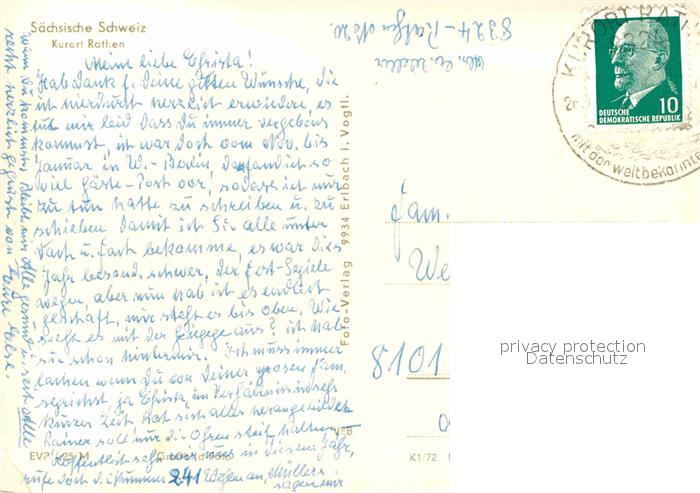 Sächsische Schweiz
Kurort Rathen
Meine liebe Christa!
Hab Dank f. Deine guten Wünsche, die
ich hierdurch herzlich erwidere, es
tut mir leid dass Du immer vergebens
kommst, ich war doch vom Nov. bis
Januar in W.- Berlin, da fand ich so
viel Gäste-Post vor, sodass ich nur
zu tun hatte zu schreiben u. zu
schieben damit ich Sie alle unter
Dach u. Fach bekomme, es war dies
Jahr besond. schwer, der Fest-Spiele
wegen, aber nun hab ich es endlich
geschafft, mir steht es bis oben. Wie
sieht es mit der aus? ich hab
sie schon hinter mir. Ich muss immer
lachen wenn Du von Deiner grossen Fam.
sprichst, ja Christa, im Verhältnis in sehr
kurzer Zeit hat sich alles herangebildet
Rainer soll nur die Ohren steif halten
Hoffentlich sehn wir uns in diesem Jahr,
rufe doch d. Nummer 241 Wehlen an, Müllers
sagen mir
wann Du kommst, bleibt mir Alle gesund u. seid Alle
recht herzlich gegrüsst von Eurer Else.
EVP
M
K1/72
Foto-Verlag 9934 Erlbach i. Vogtl.
8324 - Rathen
KURORT RAT
mit der weltbekannte
DEUTSCHE
DEMOKRATISCHE REPUBLIK
10
Fam.
We
8101
privacy protection
Datenschutz